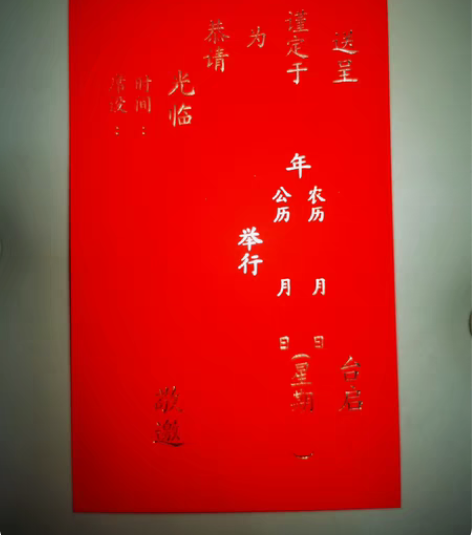 送呈 台启
谨定于 年 农历 月 日
公历 月 日 (星期 )
为 举行
恭请
光临 敬邀
时间:
席设: